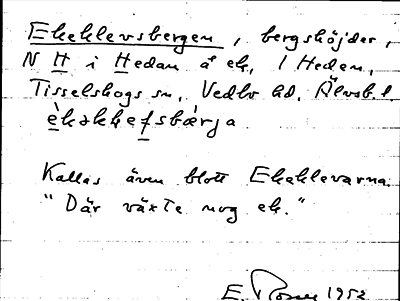 Ekeklevsbergen, bergshöjder,
N H i Hedan å ek, 1 Hedem,
Tisselskogs sn, Vedbo hd, Älvsb. l.
èkəkhefsbærja.
Kallas även blott Ekeklevarna.
"Där växte nog ek."
E. 1952